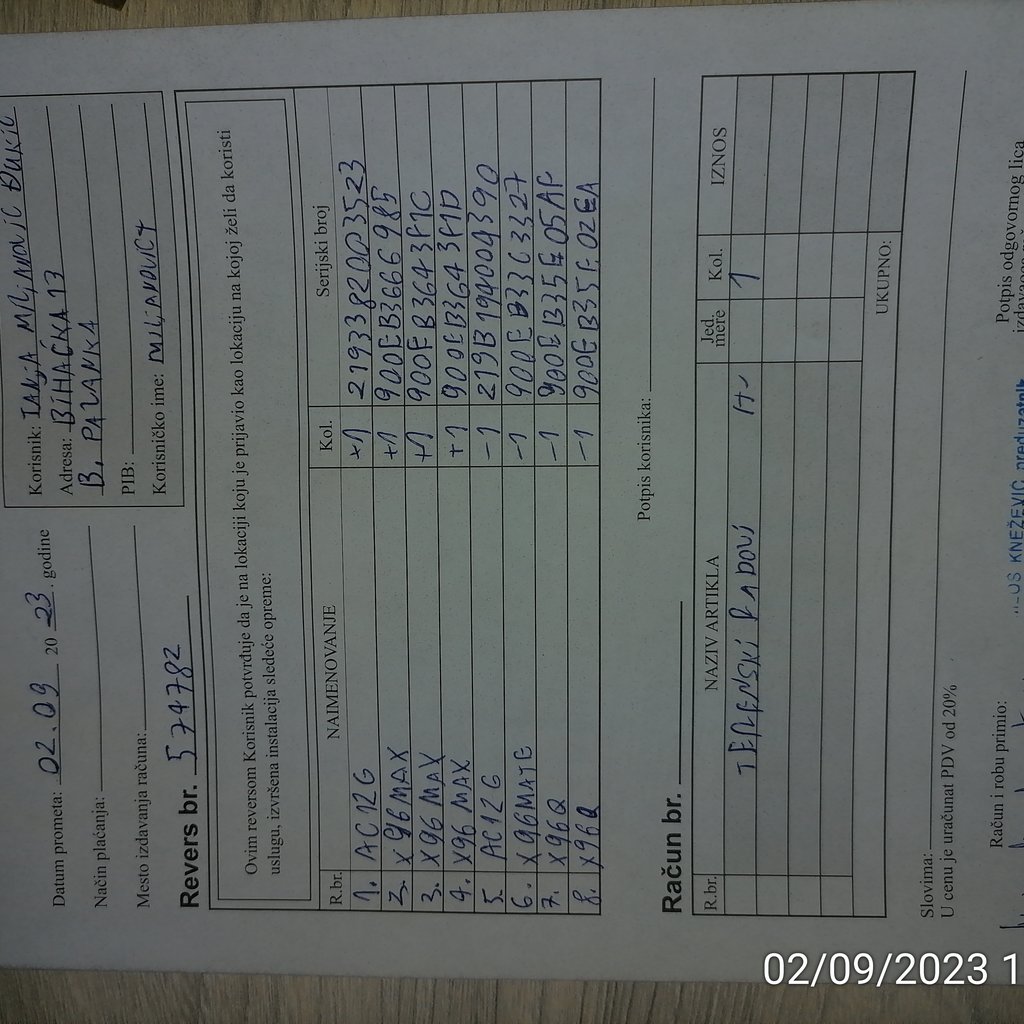 Datum prometa: 02.09 2023. godine
Način plaćanja:
Mesto izdavanja računa:
Korisnik: TANJA MILJNOVIĆ ĐUKIĆ
Adresa: BIHAĆKA 13
B. PALANKA
PIB:
Korisničko ime: MILJANOVICT
Revers br. 574782
Ovim reversom Korisnik potvrđuje da je na lokaciji koju je prijavio kao lokaciju na kojoj želi da koristi
uslugu, izvršena instalacija sledeće opreme:
R.br. NAIMENOVANJE Kol. Serijski broj
1. AC12G +1 2193382003523
2. X96MAX +1 900EB3666985
3. X96 MAX +1 900EB3643F1C
4. X96 MAX +1 900EB3643F1D
5. AC12G -1 219B194004390
6. X96MATE -1 900EB33C3327
7. X96Q -1 900EB35E05AF
8. X96Q -1 900EB35F02EA
Potpis korisnika:
Račun br.
R.br. NAZIV ARTIKLA Jed. mere Kol. IZNOS
TERENSKI RADOVI 1
UKUPNO:
Slovima:
U cenu je uračunat PDV od 20%
Račun i robu primio:
KNEŽEVIĆ preduzetnik
Potpis odgovornog lica
02/09/2023 1